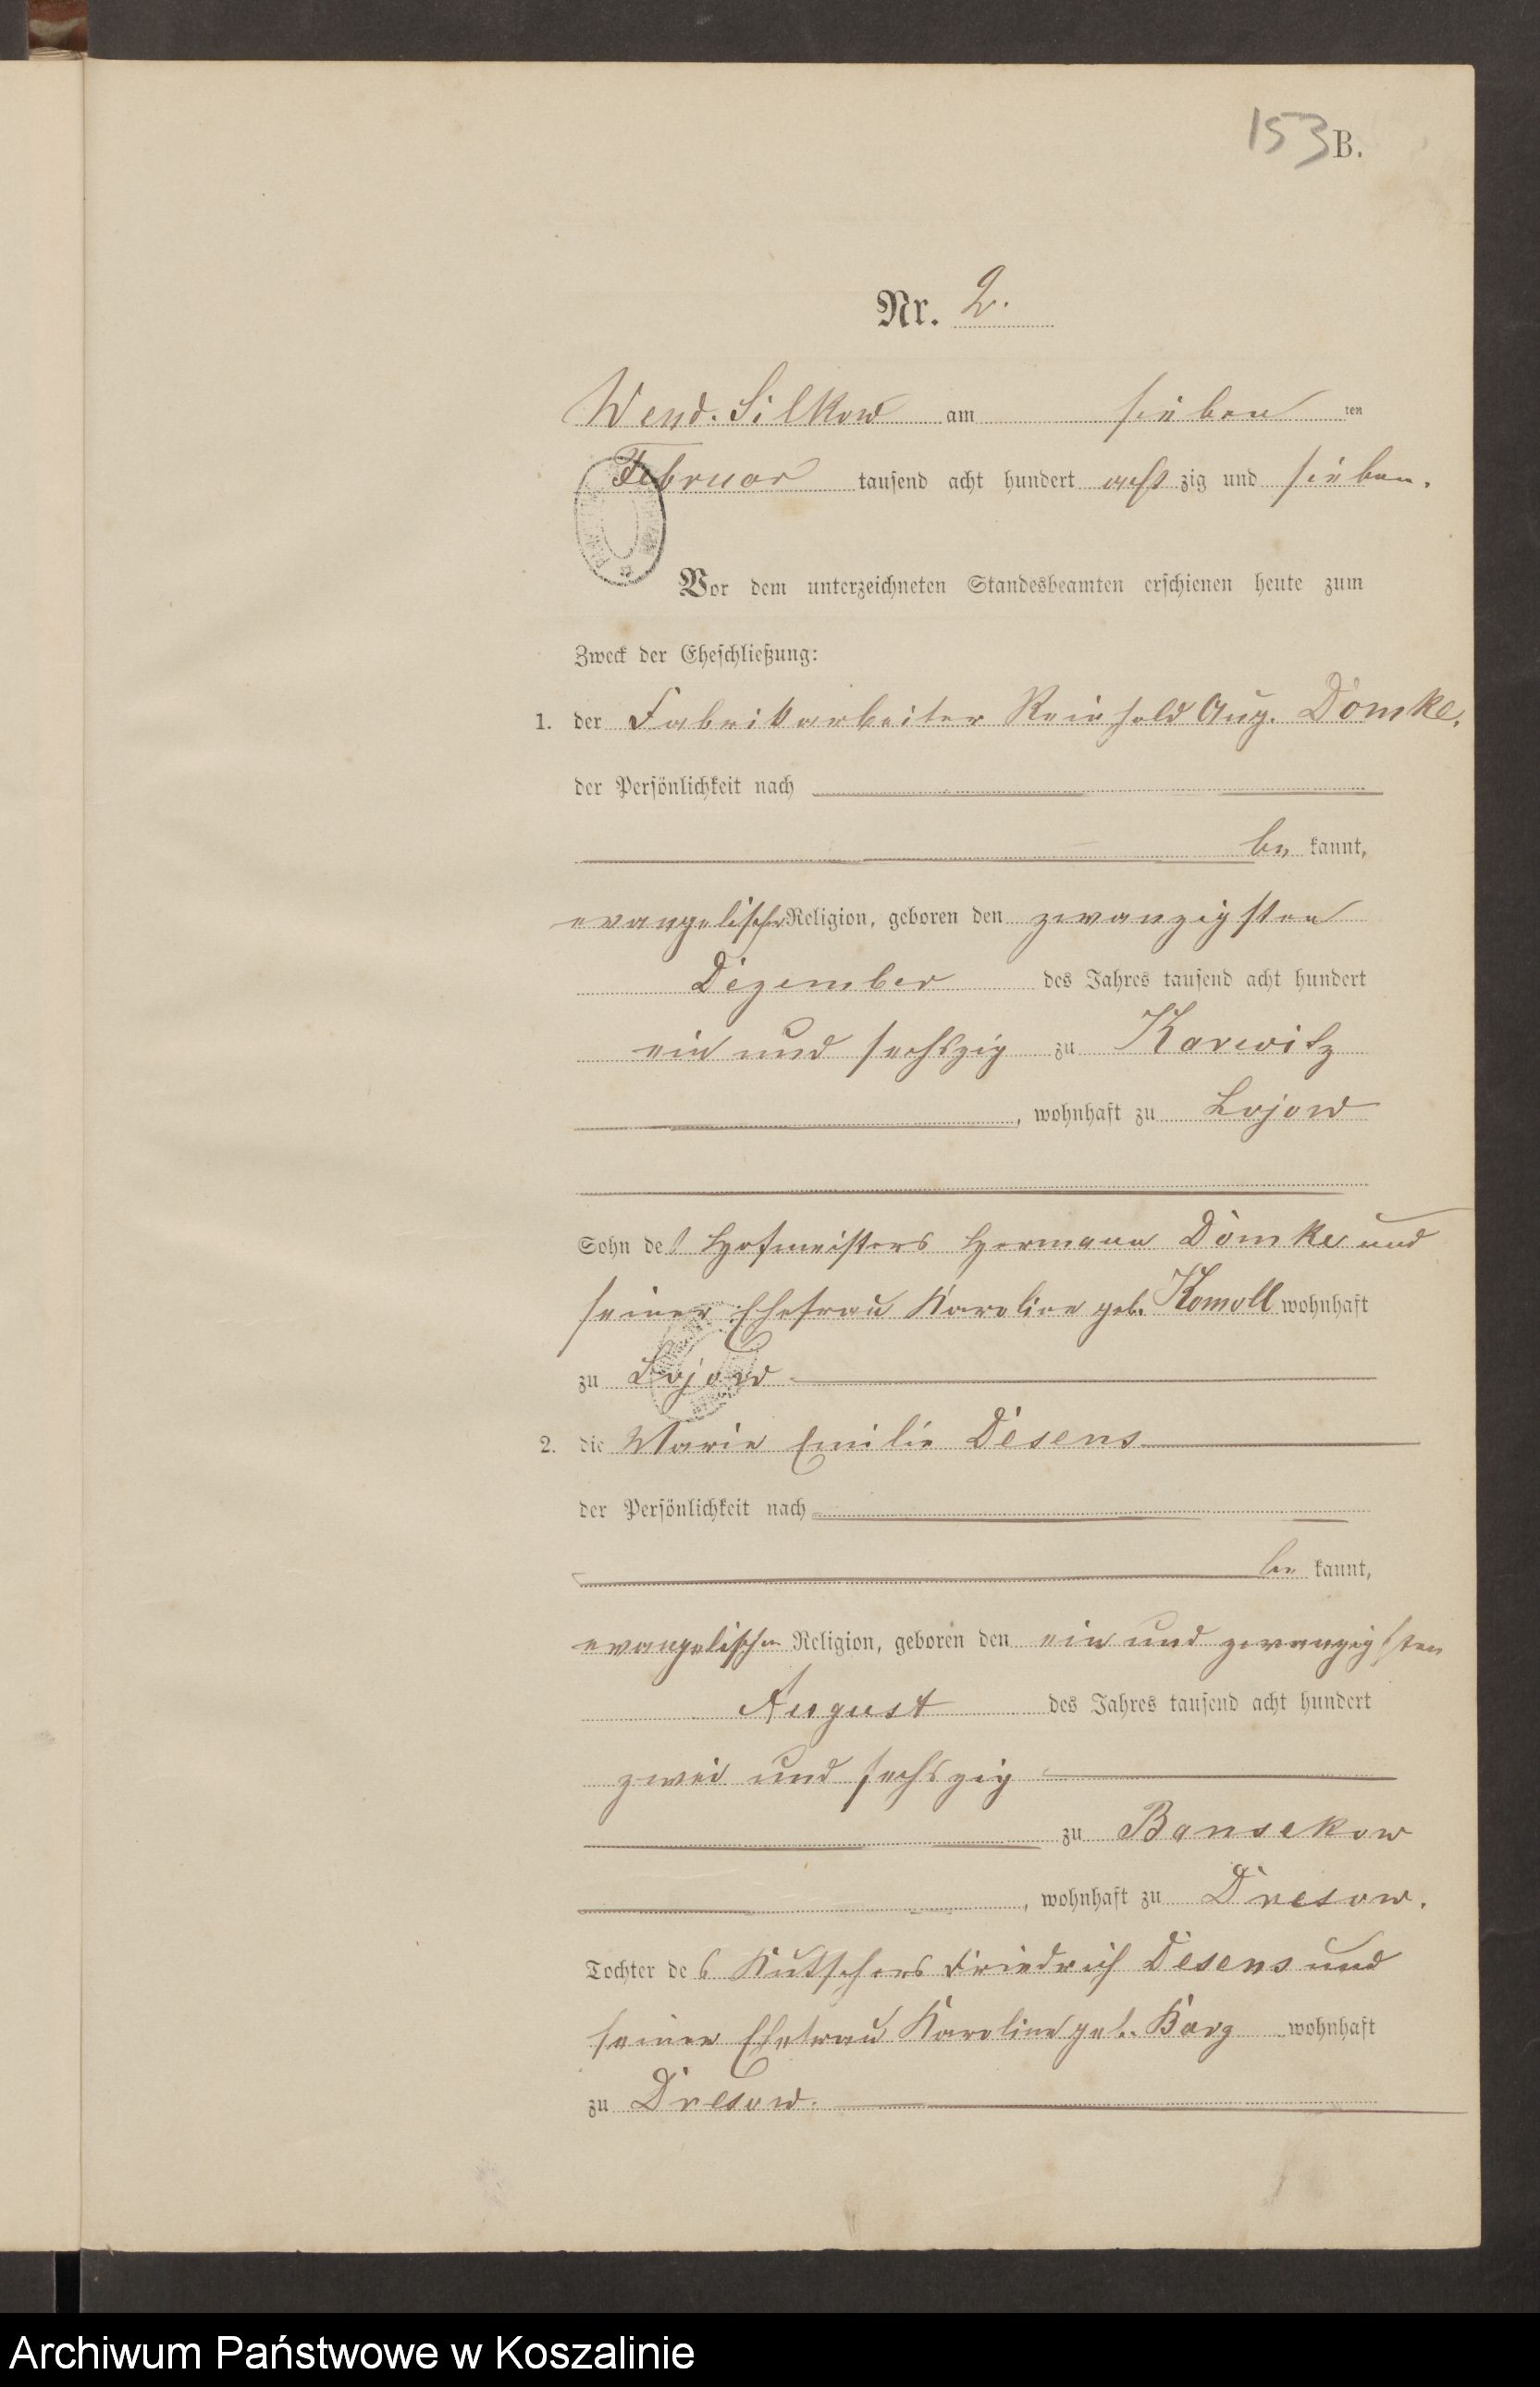 153 B.
Nr. 2.
Wend. Silkow am sieben ten
Februar tausend acht hundert acht zig und sieben.
Vor dem unterzeichneten Standesbeamten erschienen heute zum
Zweck der Eheschließung:
1. der Fabrikarbeiter Reinhold Aug. Domke,
der Persönlichkeit nach
be kannt,
evangelischer Religion, geboren den zwanzigsten
Dezember des Jahres tausend acht hundert
ein und sechszig zu Karwitz
, wohnhaft zu Lojow
Sohn des Hofmeisters Hermann Domke und
seiner Ehefrau Karoline geb. Komoll wohnhaft
zu Lojow
2. die Marie Emilie Desens
der Persönlichkeit nach
be kannt,
evangelischer Religion, geboren den ein und zwanzigsten
August des Jahres tausend acht hundert
zwei und sechszig
zu Bansekow
, wohnhaft zu Dresow.
Tochter des Kutschers Friedrich Desens und
seiner Ehefrau Karoline geb. Karg wohnhaft
zu Dresow.
Archiwum Państwowe w Koszalinie